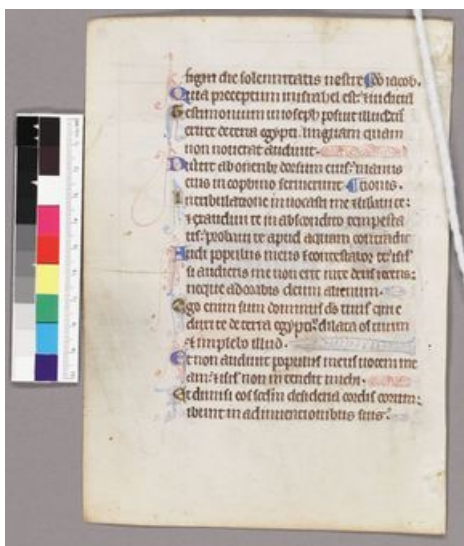 signi die solemnitatis uestre ¶ deo iacob.
Quia preceptum in israhel est: ⁊ iudiciū
Testimonium in ioseph posuit illud cū
exiret de terra egypti: linguam quam
non nouerat audiuit.
Diuertit ab oneribꝫ dorsum eius: manus
eius in cophino seruierunt ¶ tionis.
In tribulatione inuocasti me ⁊ liberaui te:
⁊ exaudiui te in abscondito tempesta
tis: probaui te apud aquam contradic
Audi populus meus ⁊ contestabor te: isrł
si audieris me non erit in te deus recens:
neque adorabis deum alienum.
Ego enim sum dominus ds tuus qui e
duxi te de terra egypti: dilata os tuum
⁊ implebo illud.
Et non audiuit populus meus uocem me
am: ⁊ isrł non intendit michi.
Et dimisi eos scd̄m desideria cordis eorum:
ibunt in adinuentionibus suis.